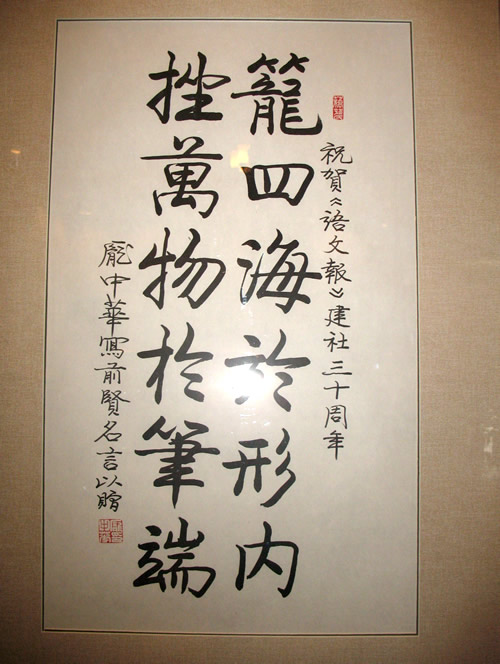 祝賀《語文報》建社三十周年
籠四海於形内
挫萬物於筆端
龐中華寫前賢名言以贈